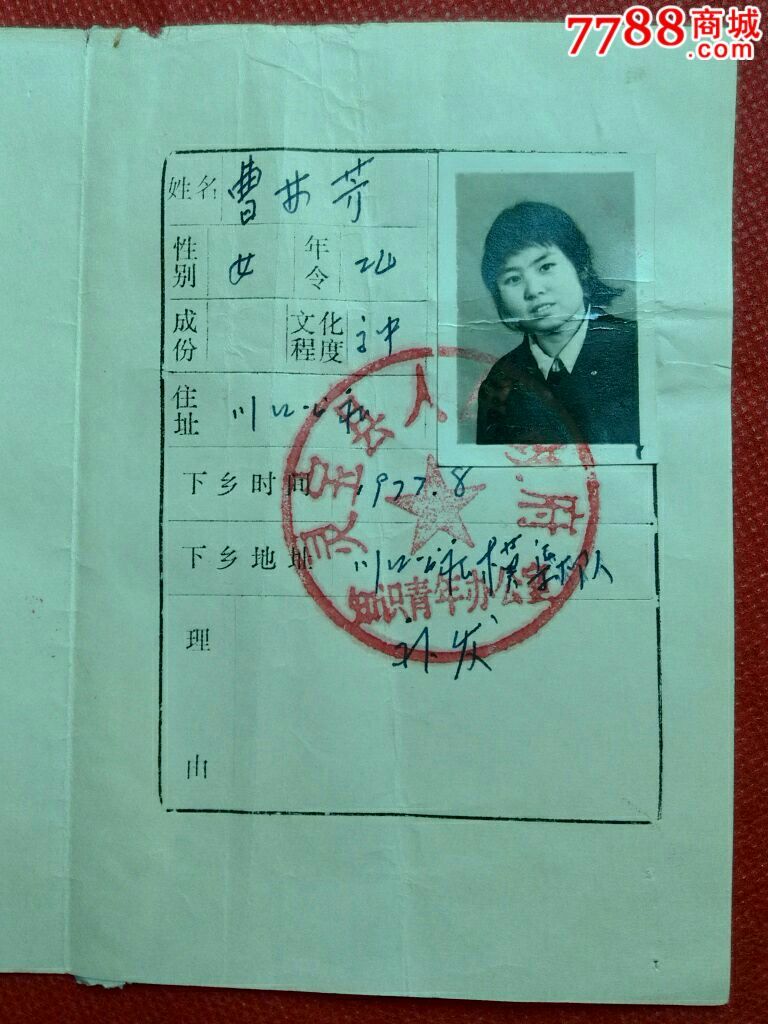 7788商城
.com
姓名 曹女芳
性别 女 年令
成份 文化程度 初中
住址 川口公社
下乡时间 1977.8
下乡地址 川口公社
灵宝县人 府
知识青年办公室
理由 补发